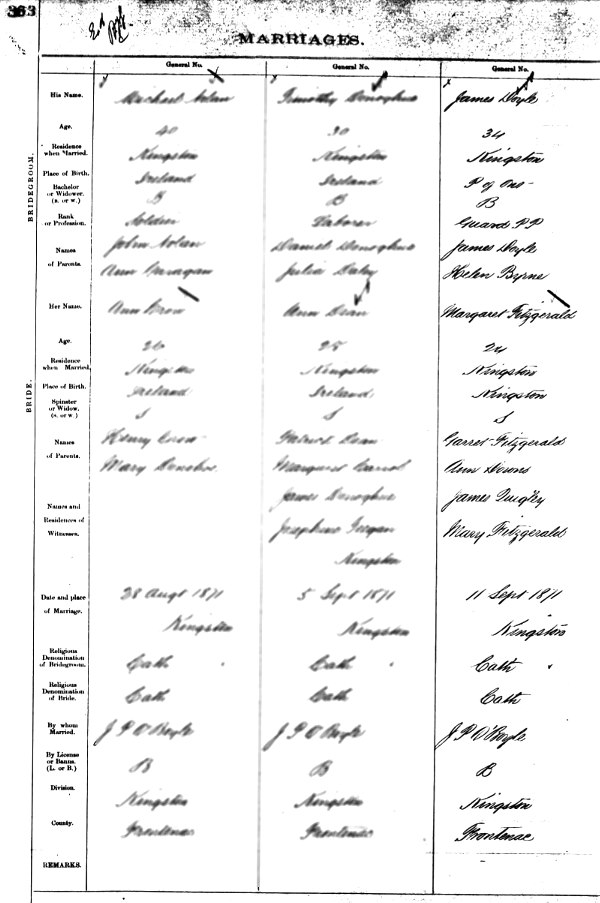 363
MARRIAGES.
General No. General No. General No.
His Name. Michael Nolan Timothy Donoghue James Doyle
Age. 40 30 34
Residence when Married. Kingston Kingston Kingston
Place of Birth. Ireland Ireland P of Ont-
Bachelor or Widower. (B. or W.) B B B
Rank or Profession. Soldier Laborer Guard PP
Names John Nolan Daniel Donoghue James Doyle
of Parents. Ann Julia Daley Helen Byrne
BRIDEGROOM.
Her Name. Ann Crow Ann Dean Margaret Fitzgerald
Age. 26 28 24
Residence when Married. Kingston Kingston Kingston
Place of Birth. Ireland Ireland Kingston
Spinster or Widow. (S. or W.) S S S
Names Henry Crow Patrick Dean Garret Fitzgerald
of Parents. Mary Donohoe Margaret Carrol Ann Downs
BRIDE.
Names and James Donoghue James Quigley
Residences of Josephine Geegan Mary Fitzgerald
Witnesses. Kingston
Date and place 28 Augt 1871 5 Sept 1871 11 Sept 1871
of Marriage. Kingston Kingston Kingston
Religious Denomination of Bridegroom. Cath Cath Cath
Religious Denomination of Bride. Cath Cath Cath
By whom Married. J P O'Boyle J P O'Boyle J P O'Boyle
By License or Banns. (L. or B.) B B B
Division. Kingston Kingston Kingston
County. Frontenac Frontenac Frontenac
REMARKS.